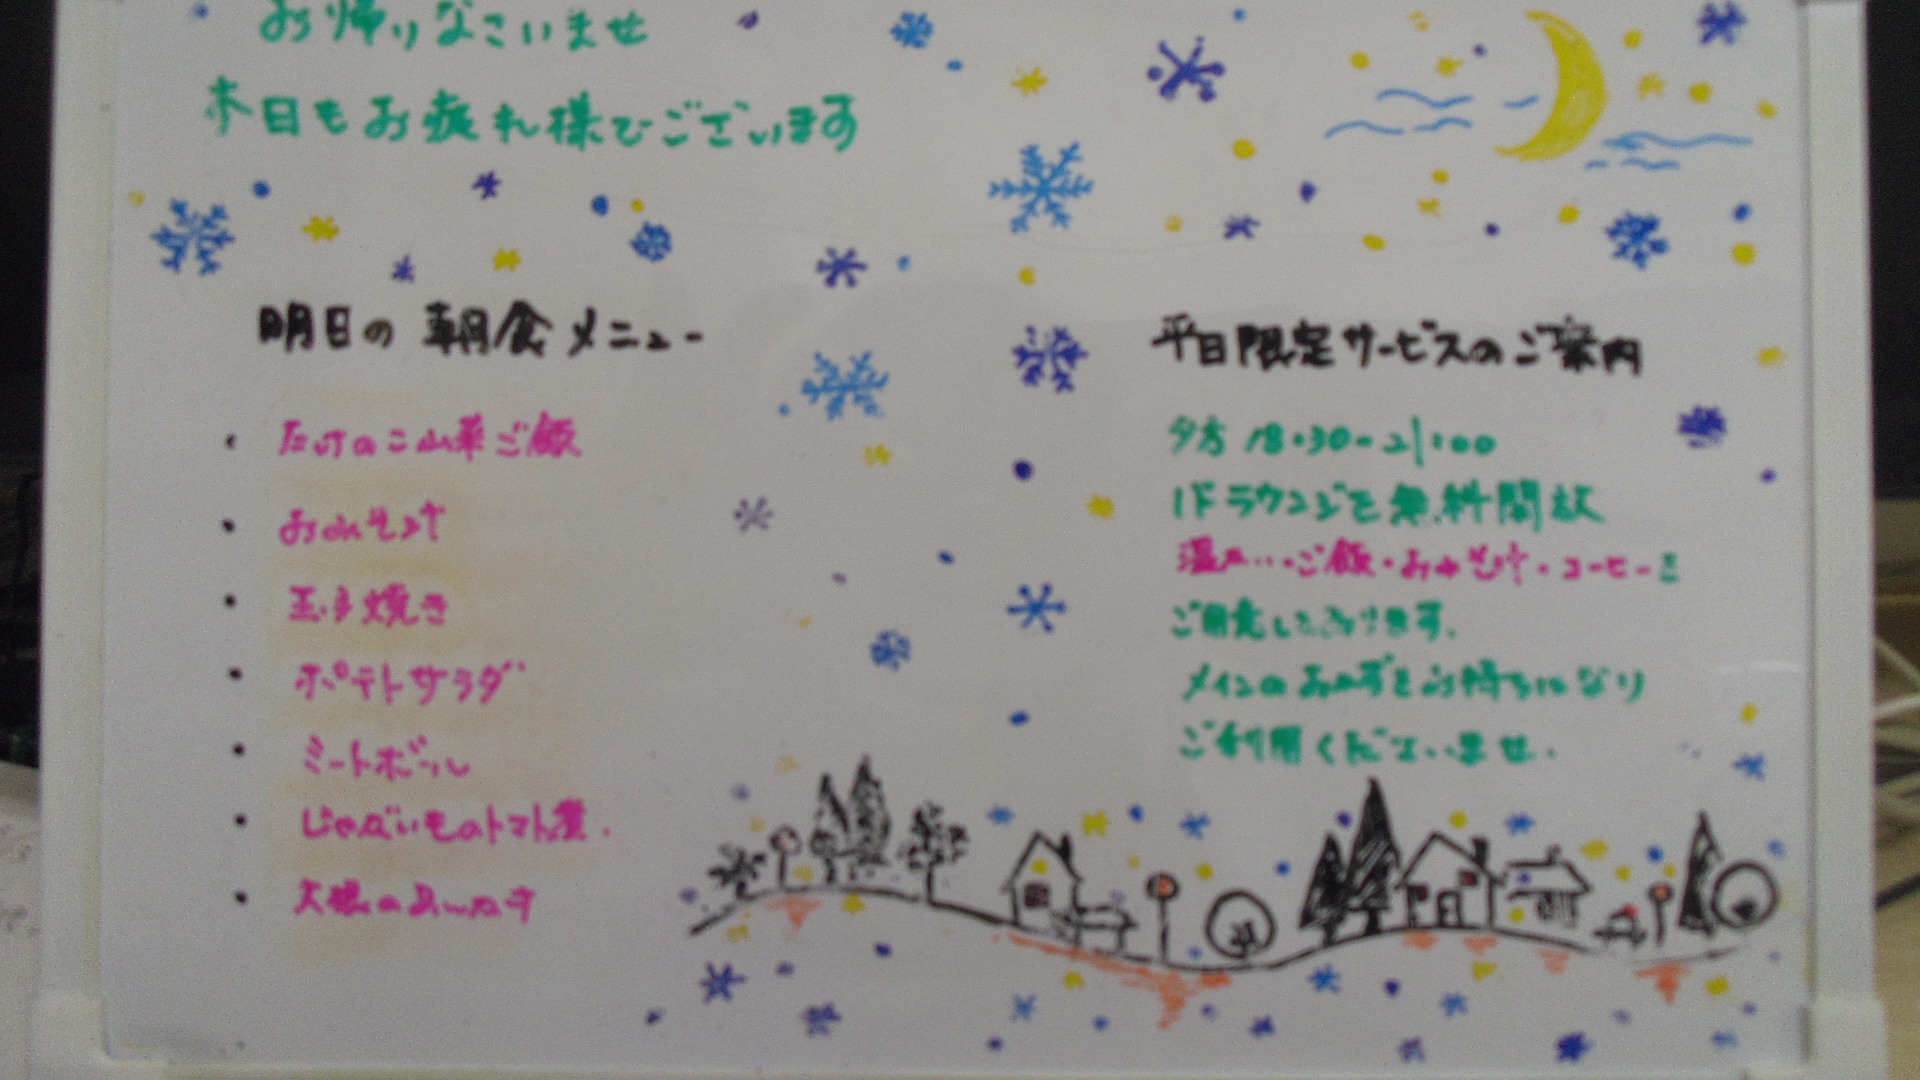 お帰りなさいませ
本日もお疲れ様でございます
明日の朝食メニュー
・たけのこ山菜ご飯
・おみそ汁
・玉子焼き
・ポテトサラダ
・ミートボール
・じゃがいものトマト煮
・大根の
平日限定サービスのご案内
夕方 18:30-21:00
1Fラウンジを無料開放
ご飯・おみそ汁・コーヒーを
ご用意しております。
メインのおかずをお持ちになり
ご利用くださいませ.